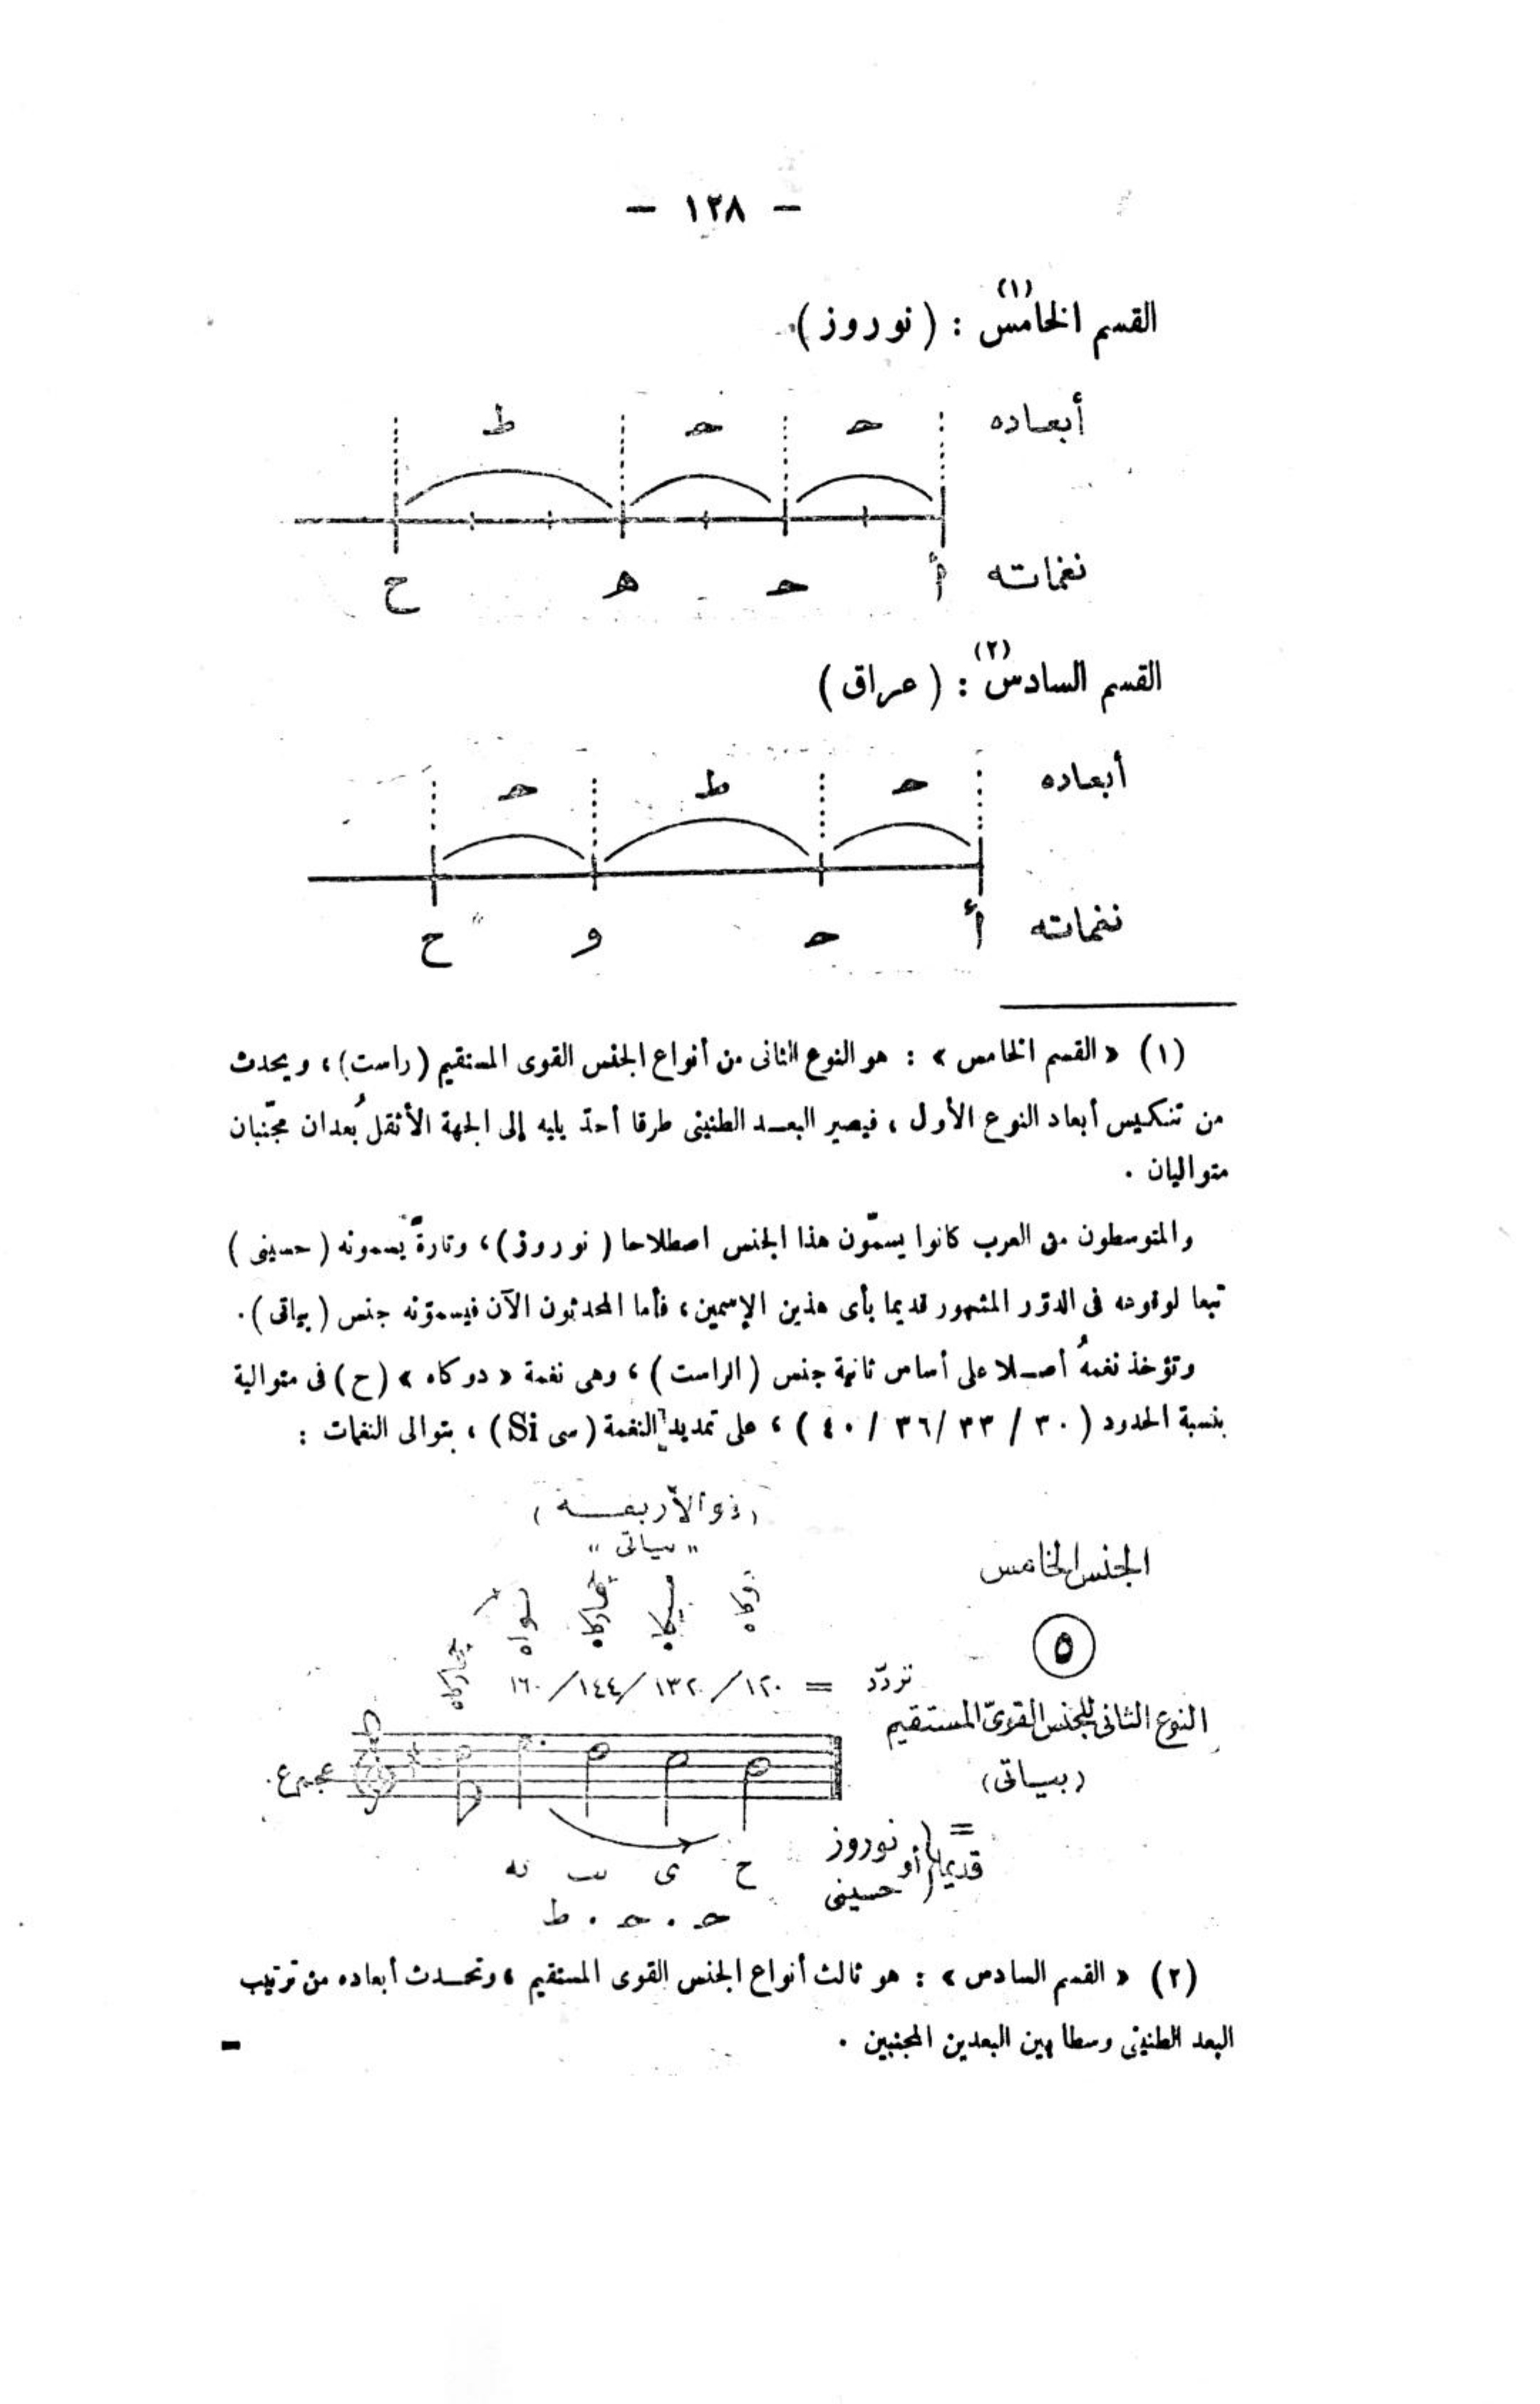 - ١٢٨ -
القسم الخامس (١) : ( نوروز )
أبعاده ح ح ط
نغماته أ ح ه ح
القسم السادس (٢) : ( عراق )
أبعاده ح ط ح
نغماته أ ح و ح
(١) « القسم الخامس » : هو النوع الثانى من أنواع الجنس القوى المستقيم (راست) ، ويحدث
من تنكيس أبعاد النوع الأول ، فيصير البعـد الطنينى طرفا أحدّ يليه إلى الجهة الأثقل بُعدان مجنّبان
متواليان .
والمتوسطون من العرب كانوا يسمّون هذا الجنس اصطلاحا ( نوروز ) ، وتارةً يسمونه ( حسينى )
تبعا لوقوعه فى الدوّر المشهور قديما بأى هذين الإسمين ، فأما المحدثون الآن فيسمّونه جنس ( بياتى ) .
وتؤخذ نغمهُ أصـلا على أساس ثانية جنس ( الراست ) ، وهى نغمة « دوكاه » (ح) فى متوالية
بنسبة الحدود ( ٣٠ / ٣٣ /٣٦ / ٤٠ ) ، على تمديد النغمة ( سى Si ) ، بتوالى النغمات :
( ذو الأربعـة )
" بياتى "
الجنس الخامس
دوكاه سيكاه چهاركاه نواه
چهاركاه
٥
تردّد = ١٢٠/ ١٣٢/ ١٤٤/ ١٦٠
النوع الثانى للجنس القوىّ المستقيم
( بيـاتى )
=
قديما ( نوروز أو حسينى )
ح ى يب يه
ح . ح . ط
(٢) « القسم السادس » : هو ثالث أنواع الجنس القوى المستقيم ، وتحـدث أبعاده من ترتيب
البعد الطنينى وسطا بين البعدين المجنبين .
-